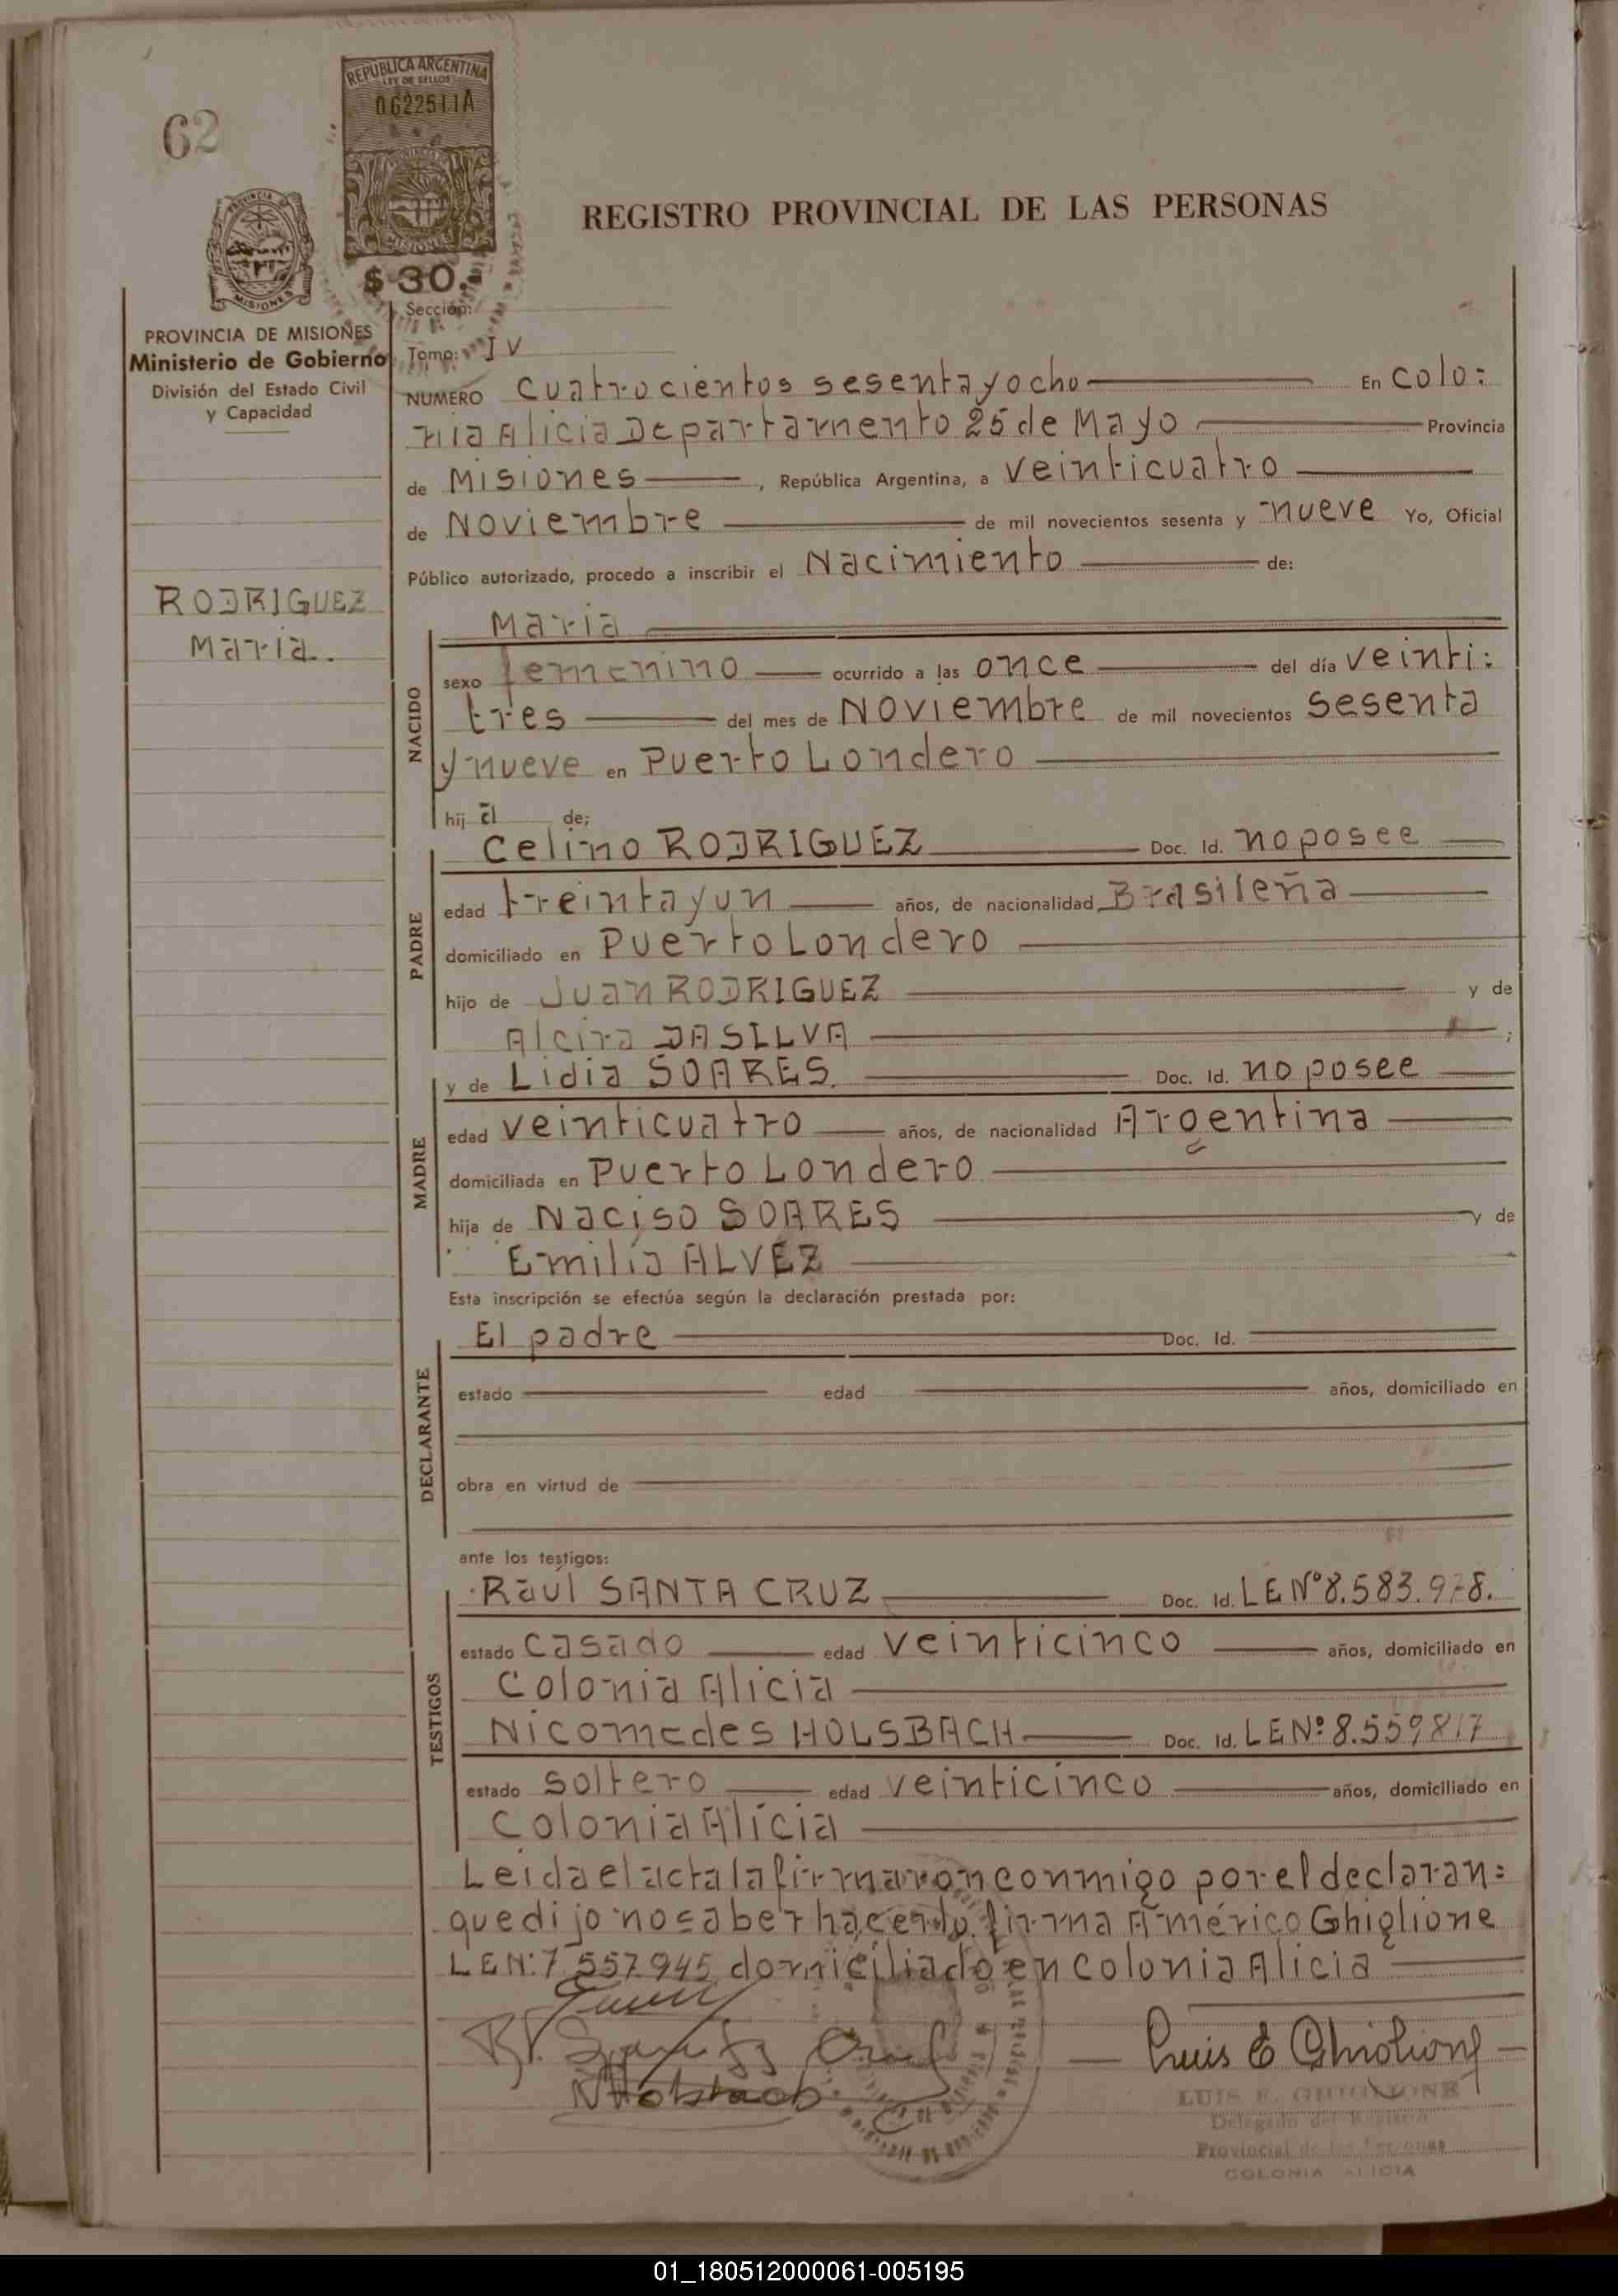 62
REPUBLICA ARGENTINA
LEY DE SELLOS
0622511A
PROVINCIA DE
MISIONES
$ 30.-
PROVINCIA DE
MISIONES
REGISTRO PROVINCIAL DE LAS PERSONAS
PROVINCIA DE MISIONES
Ministerio de Gobierno
División del Estado Civil
y Capacidad
RODRIGUEZ
Maria.
Sección:
Tomo: IV
NUMERO cuatrocientos sesenta y ocho En Colo:
nia Alicia Departamento 25 de Mayo Provincia
de Misiones , República Argentina, a veinticuatro
de Noviembre de mil novecientos sesenta y nueve Yo, Oficial
Público autorizado, procedo a inscribir el Nacimiento de:
NACIDO
Maria
sexo femenino ocurrido a las once del día veinti:
tres del mes de Noviembre de mil novecientos sesenta
y nueve en Puerto Londero
hij a de;
PADRE
Celino RODRIGUEZ Doc. Id. no posee
edad treinta y un años, de nacionalidad Brasileña
domiciliado en Puerto Londero
hijo de Juan RODRIGUEZ y de
Alcira DA SILVA ;
MADRE
y de Lidia SOARES. Doc. Id. no posee
edad veinticuatro años, de nacionalidad Argentina
domiciliada en Puerto Londero
hija de Naciso SOARES y de
Emilia ALVEZ
Esta inscripción se efectúa según la declaración prestada por:
DECLARANTE
El padre Doc. Id.
estado edad años, domiciliado en
obra en virtud de
ante los testigos:
TESTIGOS
Raúl SANTA CRUZ Doc. Id. LE Nº 8.583.978.
estado casado edad veinticinco años, domiciliado en
Colonia Alicia
Nicomedes HOLSBACH Doc. Id. LE Nº 8.559817
estado soltero edad veinticinco años, domiciliado en
Colonia Alicia
Leida el acta la firmaron conmigo por el declaran:
que dijo no saber hacerlo firma Américo Ghiglione
LE N: 7.557.945 domiciliado en Colonia Alicia
R. Santa Cruz
N Holsbach
Luis E Ghiglione
LUIS E. GHIGLIONE
Delegado del Registro
Provincial de las Personas
COLONIA ALICIA
01_180512000061-005195